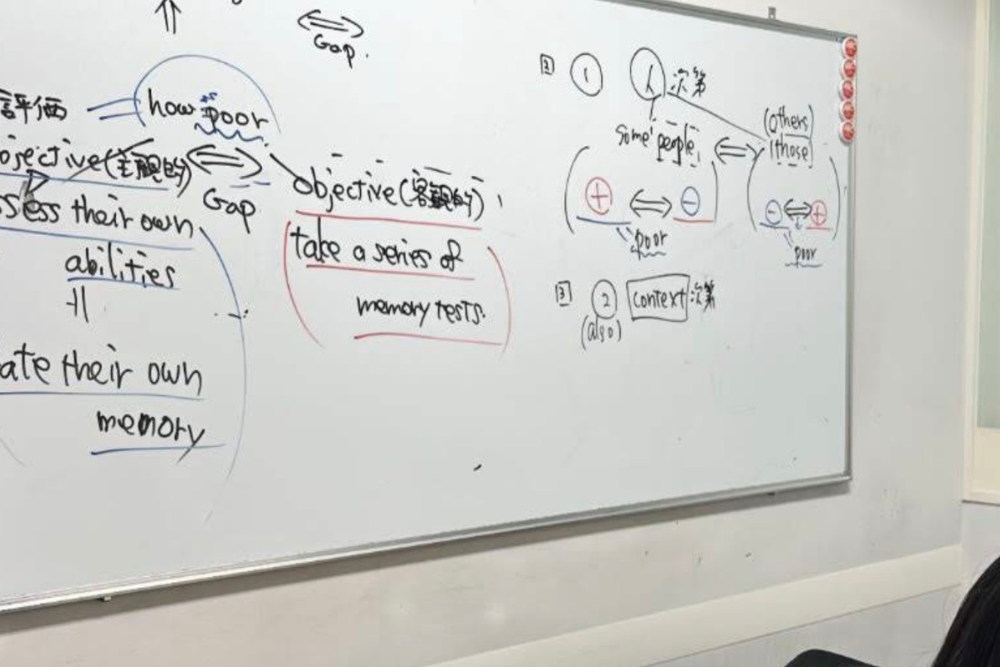 Gap.
評価
how poor
ojective(主観的)
Gap
ssess their own
abilities
ate their own
memory
objective(客観的)
take a series of
memory tests.
② ① 人次第
some people
(others)
those
+ −
poor
− +
poor
③ ② context次第
(also)